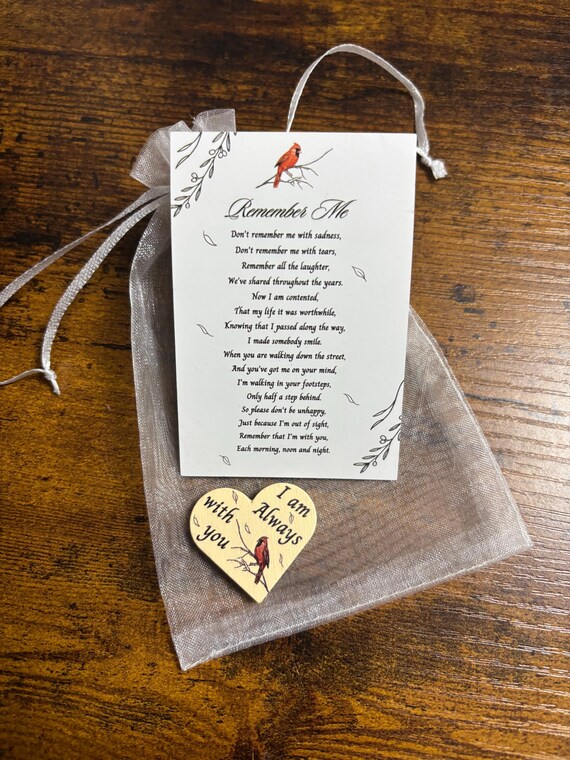 Remember Me
Don't remember me with sadness,
Don't remember me with tears,
Remember all the laughter,
We've shared throughout the years.
Now I am contented,
That my life it was worthwhile,
Knowing that I passed along the way,
I made somebody smile.
When you are walking down the street,
And you've got me on your mind,
I'm walking in your footsteps,
Only half a step behind.
So please don't be unhappy,
Just because I'm out of sight,
Remember that I'm with you,
Each morning, noon and night.
I am
Always
with
you